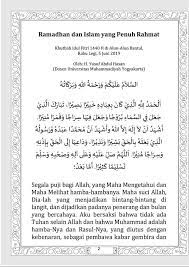 Ramadhan dan Islam yang Penuh Rahmat
Khutbah Idul Fitri 1440 H di Alun-Alun Bantul,
Rabu Legi, 5 Juni 2019
Oleh: H. Yusuf Abdul Hasan
(Dosen Universitas Muhammadiyah Yogyakarta)
السَّلَامُ عَلَيْكُمْ وَرَحْمَةُ اللهِ وَبَرَكَاتُهُ
الْحَمْدُ لِلَّهِ الَّذِيْ كَانَ بِعِبَادِهِ خَبِيْرًا بَصِيْرًا، تَبَارَكَ الَّذِيْ
جَعَلَ فِي السَّمَاءِ بُرُوْجًا وَجَعَلَ فِيْهَا سِرَاجًا وَقَمَرًا مُنِيْرًا.
Segala puji bagi Allah, yang Maha Mengetahui dan
Maha Melihat hamba-hambanya. Maha suci Allah,
Dia-lah yang menjadikan bintang-bintang di
langit, dan dijadikan padanya penerang dan bulan
yang bercahaya. Aku bersaksi bahwa tidak ada
Tuhan selain Allah dan bahwa Muhammad adalah
hamba-Nya dan Rasul-Nya, yang diutus dengan
kebenaran, sebagai pembawa kabar gembira dan